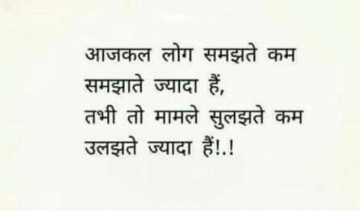 आजकल लोग समझते कम
समझाते ज्यादा हैं,
तभी तो मामले सुलझते कम
उलझते ज्यादा हैं!.!